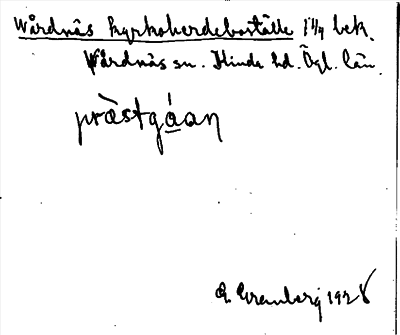 Vårdnäs kyrkoherdeboställe 1 1/4 bek.
Vårdnäs sn. Kinda hd. Ögl. län.
prästgå̱an
G. Granberg 1928